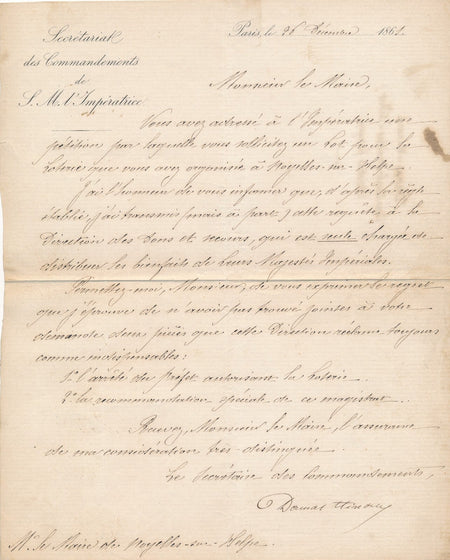 Secrétariat
des Commandements
de
S. M. l'Impératrice
Paris, le 26 Décembre 1861.
Monsieur le Maire,
Vous avez adressé à l'Impératrice une
pétition par laquelle vous sollicitez un Lot pour la
Loterie que vous avez organisée à Noyelles-sur-Helpe.
J'ai l'honneur de vous informer que, d'après la règle
établie, j'ai transmis (mais à part) cette requête à la
Direction des Dons et secours, qui est seule chargée de
distribuer les bienfaits de Leurs Majestés Impériales.
Permettez-moi, Monsieur, de vous exprimer le regret
que j'éprouve de n'avoir pas trouvé jointes à votre
demande deux pièces que cette Direction réclame toujours
comme indispensables:
1° l'arrêté du préfet autorisant la Loterie.
2° la recommandation spéciale de ce magistrat.
Recevez, Monsieur le Maire, l'assurance
de ma considération très distinguée.
Le Secrétaire des Commandements,
Damas Hinard
Mr. le Maire de Noyelles-sur-Helpe.